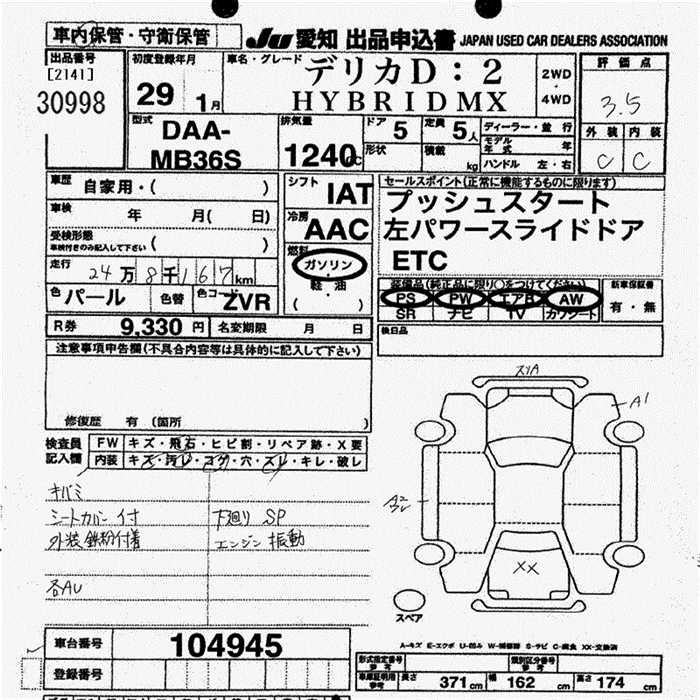 車内保管・守衛保管
JU 愛知 出品申込書 JAPAN USED CAR DEALERS ASSOCIATION
出品番号
[2141]
30998
初度登録年月
29 1月
車名・グレード
デリカD：2
HYBRIDMX
2WD
・
4WD
評価点
3.5
外装 内装
C C
型式
DAA-
MB36S
排気量
1240cc
ドア 5
定員 5人
形状
積載 kg
ディーラー・並行
モデル年式 年
ハンドル 左・右
車歴 自家用・( )
車検 年 月( 日)
受検形態
車検付きのみ記入して下さい ( )
走行 24万8千167km
色 パール
色替
色コード ZVR
シフト IAT
冷房 AAC
燃料
ガソリン
軽・油
( )
セールスポイント(正常に機能するものに限ります)
プッシュスタート
左パワースライドドア
ETC
装備品(純正品に限り○をつけてください)
PS PW エアB AW
SR ナビ TV カワシート
新車保証書
有・無
R券 9,330円
名変期限 月 日
後日品
注意事項申告欄(不具合内容等は具体的に記入して下さい)
修復歴 有 (箇所 )
検査員
記入欄
FW キズ・飛石・ヒビ割・リペア跡・X要
内装 キズ・汚レ・コゲ・穴・スレ・キレ・破レ
キバミ
シートカバー付
下廻り SP
外装鉄粉付着
エンジン振動
各AU
スリA
A1
A2
XX
スペア
A-キズ E-エクボ U-凹み W-補修跡 S-サビ C-腐食 XX-交換済
車台番号 104945
登録番号
型式指定番号
参考
類別区分番号
参考
車庫証明用
参考
長さ 371cm
幅 162cm
高さ 174cm